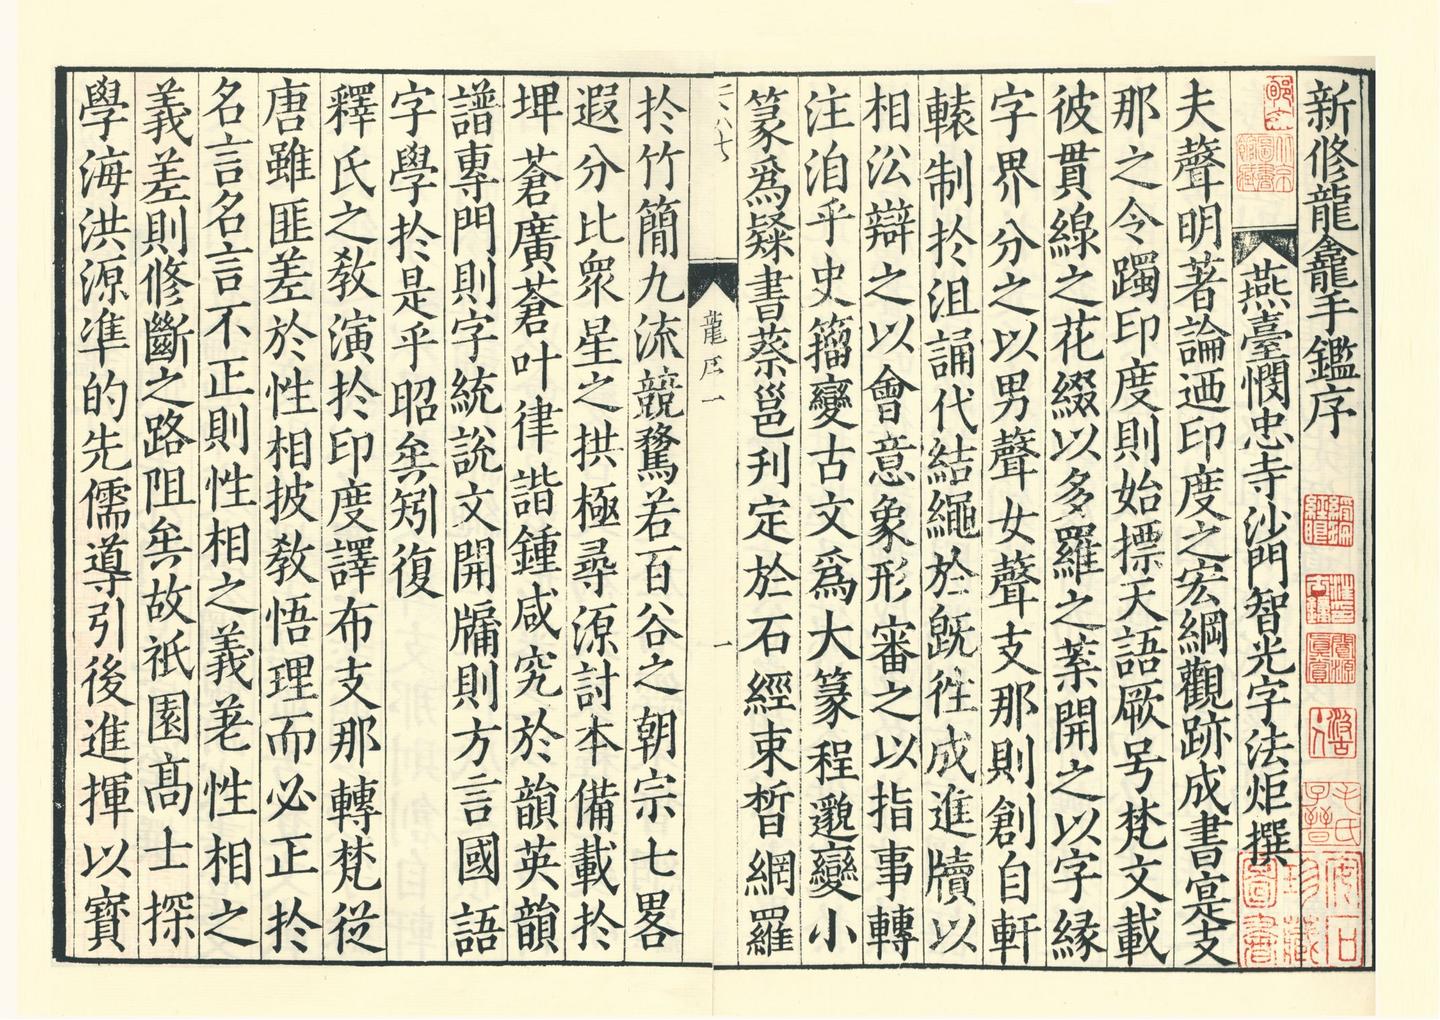 新修龍龕手鑑序
燕臺憫忠寺沙門智光字法炬撰
夫聲明著論迺印度之宏綱觀跡成書寔支
那之令躅印度則始摽天語厥号梵文載
彼貫線之花綴以多羅之葉開之以字緣
字界分之以男聲女聲支那則創自軒
轅制於沮誦代結繩於旣徃成進牘以
相沿辯之以會意象形審之以指事轉
注洎乎史籀變古文爲大篆程邈變小
篆爲隸書蔡邕刊定於石經束晳網羅
於竹簡九流競騖若百谷之朝宗七畧
遐分比衆星之拱極尋源討本備載於
埤蒼廣蒼叶律諧鍾咸究於韻英韻
譜專門則字統說文開牖則方言國語
字學於是乎昭矣矧復
釋氏之教演於印度譯布支那轉梵從
唐雖匪差於性相披教悟理而必正於
名言名言不正則性相之義差性相之
義差則修斷之路阻矣故祇園髙士探
學海洪源准的先儒導引後進揮以寳
龍序一
一